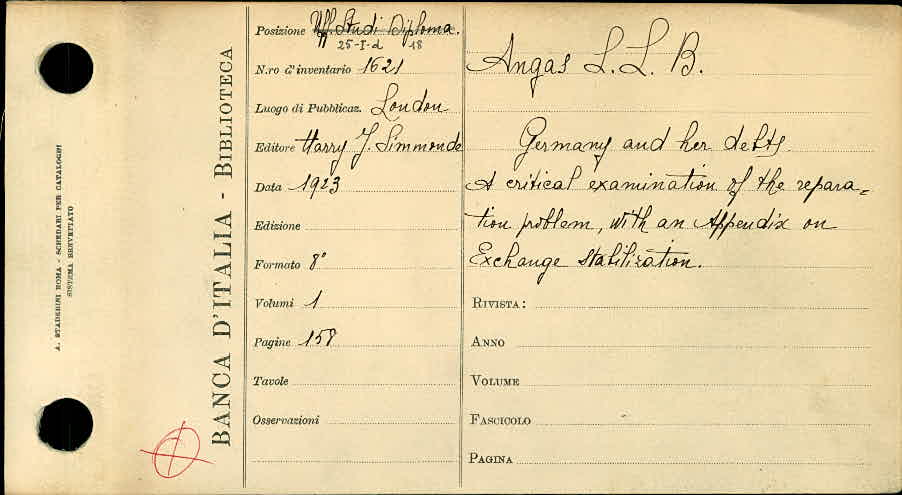 A. STADERINI ROMA - SCHEDARI PER CATALOGHI
SISTEMA BREVETTATO
BANCA D'ITALIA - BIBLIOTECA
Posizione Uff. Studi Diploma.
25-I-d 18
N.ro d'inventario 1621
Luogo di Pubblicaz. London
Editore Harry J. Simmonds
Data 1923
Edizione
Formato 8°
Volumi 1
Pagine 158
Tavole
Osservazioni
Angas L. L. B.
Germany and her debts.
A critical examination of the repara=
tion problem, with an Appendix on
Exchange stabilization.
RIVISTA:
ANNO
VOLUME
FASCICOLO
PAGINA